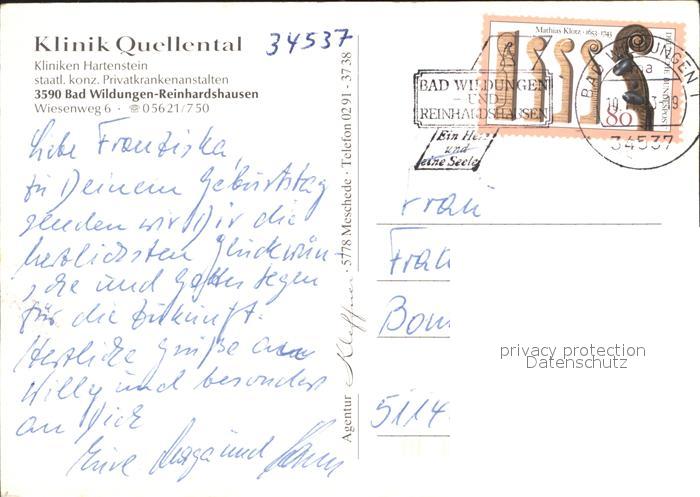 Klinik Quellental
34537
Kliniken Hartenstein
staatl. konz. Privatkrankenanstalten
3590 Bad Wildungen-Reinhardshausen
Wiesenweg 6 · ☎ 05621/750
Liebe Franziska,
zu Deinem Geburtstag
senden wir Dir die
herzlichsten Glückwün-
sche und Gottes Segen
für die Zukunft.
Herzliche Grüße an
Willy und besonders
an Dich
Eure Marga und
Agentur Kleffner · 5778 Meschede · Telefon 02 91 - 37 38
Mathias Klotz · 1653-1743
80
BAD WILDUNGEN
- UND -
REINHARDSHAUSEN
Ein Herz
und
eine Seele
BAD WILDUNGEN
34537
Frau
Fran
Bom
5114
privacy protection
Datenschutz